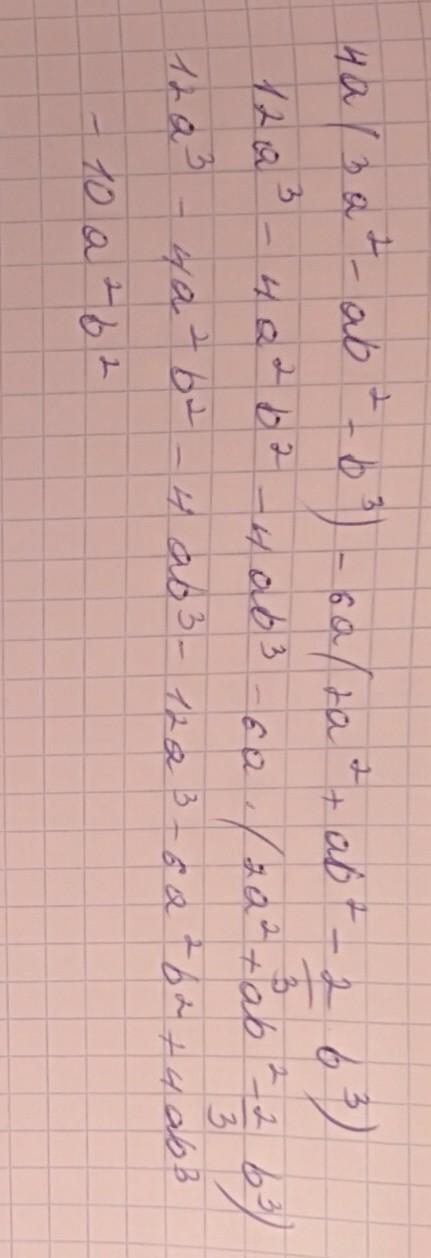 4a(3a² - ab² - b³) - 6a(2a² + ab² - 2/3 b³)
12a³ - 4a²b² - 4ab³ - 6a · (2a² + ab² - 2/3 b³)
12a³ - 4a²b² - 4ab³ - 12a³ - 6a²b² + 4ab³
- 10a²b²